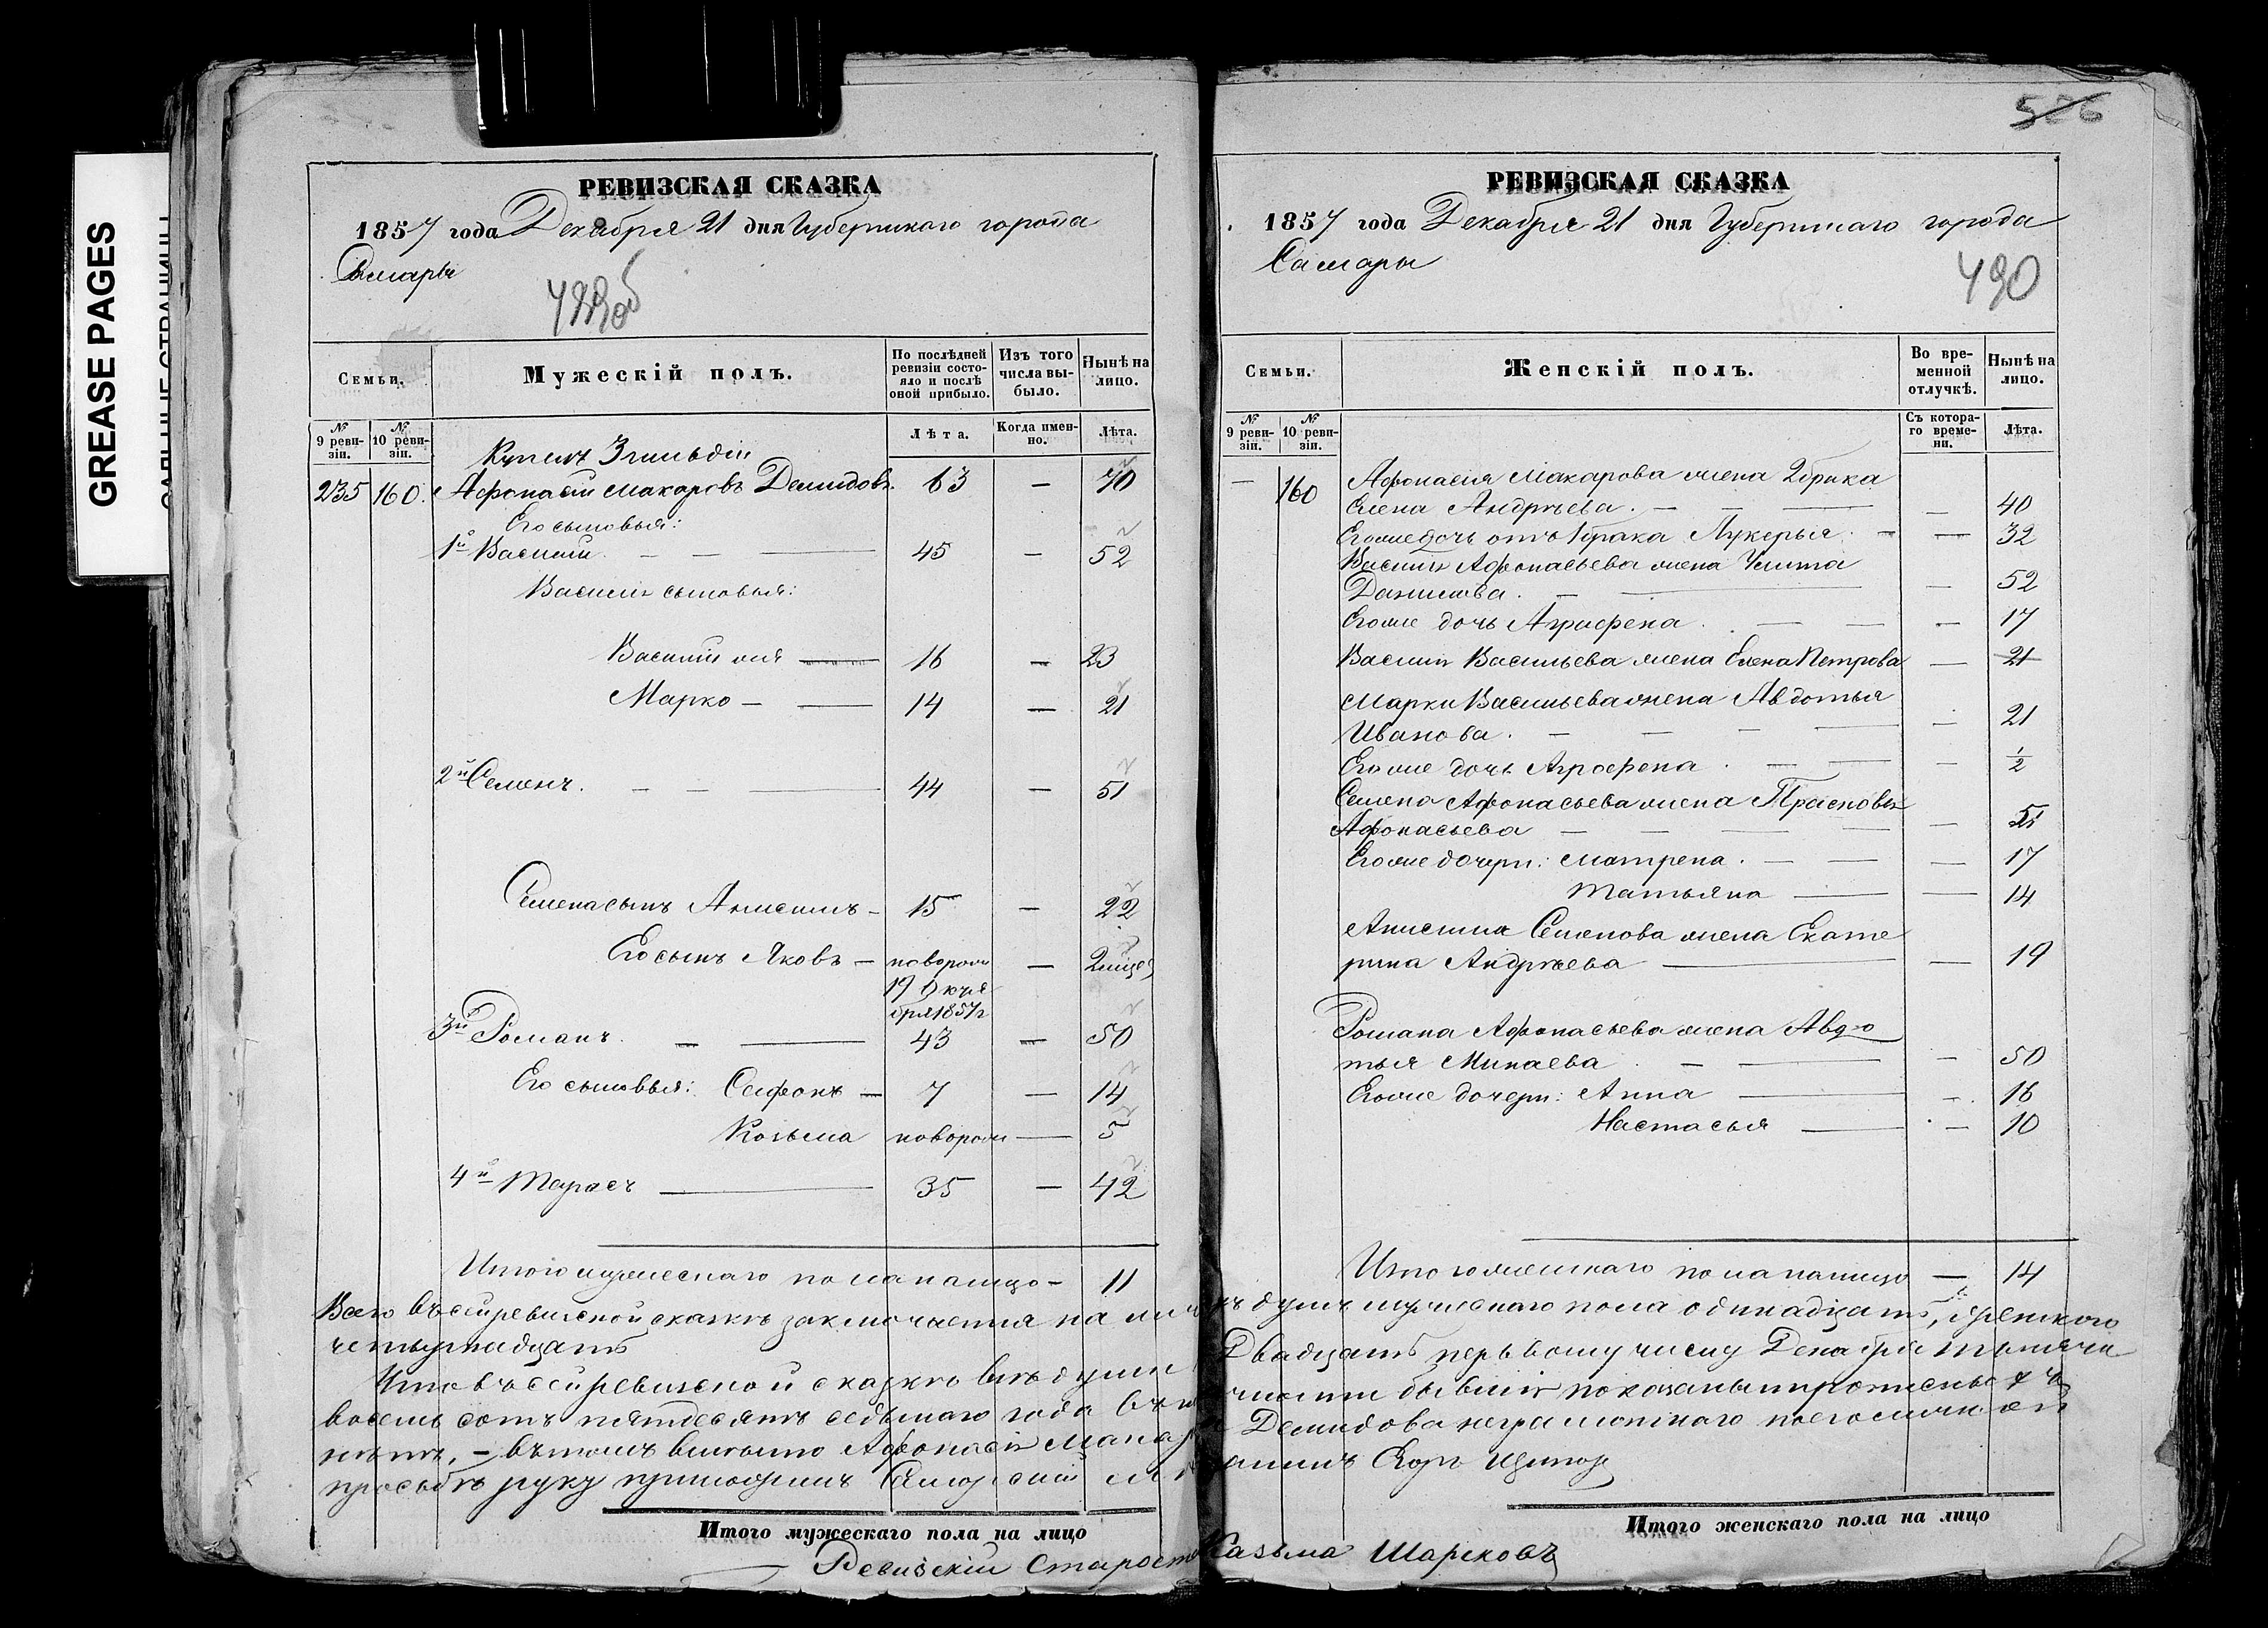 GREASE PAGES
РЕВИЗСКАЯ СКАЗКА
1857 года Декабря 21 дня Губернскаго города
Самары
Семьи.
Мужескій полъ.
По послѣдней ревизіи состояло и послѣ оной прибыло.
Изъ того числа выбыло.
Нынѣ на лицо.
№ 9 ревизіи.
№ 10 ревизіи.
Лѣта.
Когда именно.
Лѣта.
Купецъ 3 гильдіи
235 160. Афонасій Макаровъ Демидовъ. 63 — 70
Его сыновья:
1й Василій — — 45 — 52
Василія сыновья:
Василій же 16 — 23
Марко — — 14 — 21
2й Семенъ. — — 44 — 51
Семена сынъ Анисимъ — 15 — 22
Его сынъ Яковъ — новорож — 2 мѣсец
19 Октя
бря 1857 г
3й Романъ. — — 43 — 50
Его сыновья: Селфонъ — 7 — 14
Козьма новорож — 5
4й Тарасъ — 35 — 42
Итого мужескаго пола налицо — 11
РЕВИЗСКАЯ СКАЗКА
1857 года Декабря 21 дня Губернскаго города
Самары
490
506
Семьи.
Женскій полъ.
Во временной отлучкѣ.
Нынѣ на лицо.
№ 9 ревизіи.
№ 10 ревизіи.
Съ котораго времени.
Лѣта.
— 160 Афонасія Макарова жена 2 брака
Елена Андрѣева. — — — 40
Его же дочь отъ 1 брака Лукерья — — 32
Василія Афонасьева жена Улита
Данилова. — — 52
Его же дочь Аграфена — — — 17
Василія Васильева жена Елена Петрова — 21
Марки Васильева жена Авдотья
Иванова. — — — — 21
Его же дочь Аграфена — — — 1/2
Семена Афонасьева жена Прасковья
Афонасьева — — — — — 51
Его же дочери: Матрена. — — — 17
Татьяна — — 14
Анисима Семенова жена Екате
рина Андрѣева — — 19
Романа Афонасьева жена Авдо
тья Минаева — — — 50
Его же дочери: Анна — — 16
Настасья — — 10
Итого женскаго пола налицо — 14
Всего въ сей ревизской сказкѣ заключается на ли
цо душъ мужескаго пола одинадцать, женскаго
четырнадцать
Двадцать первому числу Декабря тысяча
Что въ сей ревизской сказкѣ всѣ души
восемь сотъ пятдесятъ седьмаго года въ
бывшія показаны и прописныхъ
нѣтъ, — въ томъ вмѣсто Афонасія Мака
Демидова неграмотнаго по его личной
прозьбѣ руку приложилъ Самарскій
Егоръ
Итого мужескаго пола на лицо
Итого женскаго пола на лицо
Ревизскій Староста Казьма Шарековъ